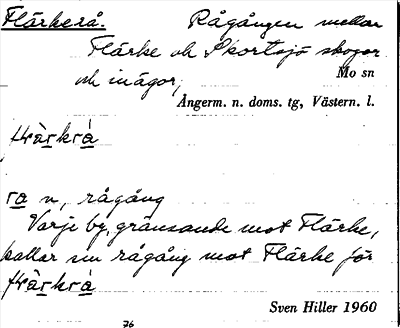 Flärkerå. Rågången mellan
Flärke och Skortsjö skogar
och inägor,
Mo sn
Ångerm. n. doms. tg, Västern. l.
rå n, rågång
Varje by, gränsande mot Flärke,
kallar sin rågång mot Flärke för
Sven Hiller 1960
76